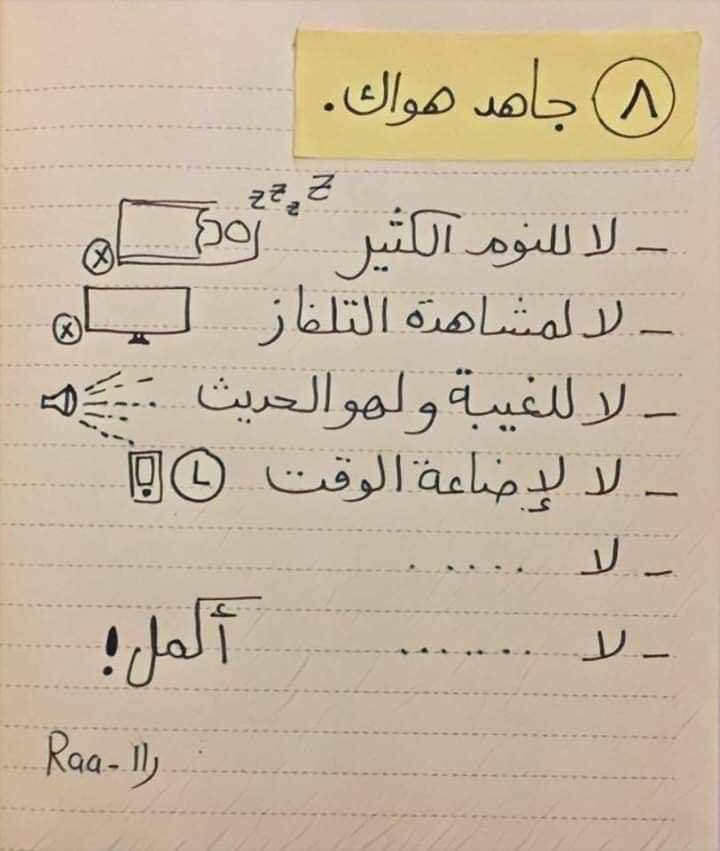 ٨ جاهد هواك.
zzzz
- لا للنوم الكثير
- لا لمشاهدة التلفاز
- لا للغيبة ولهو الحديث
- لا لإضاعة الوقت
- لا .....
- لا ....... أكمل!
Raa-